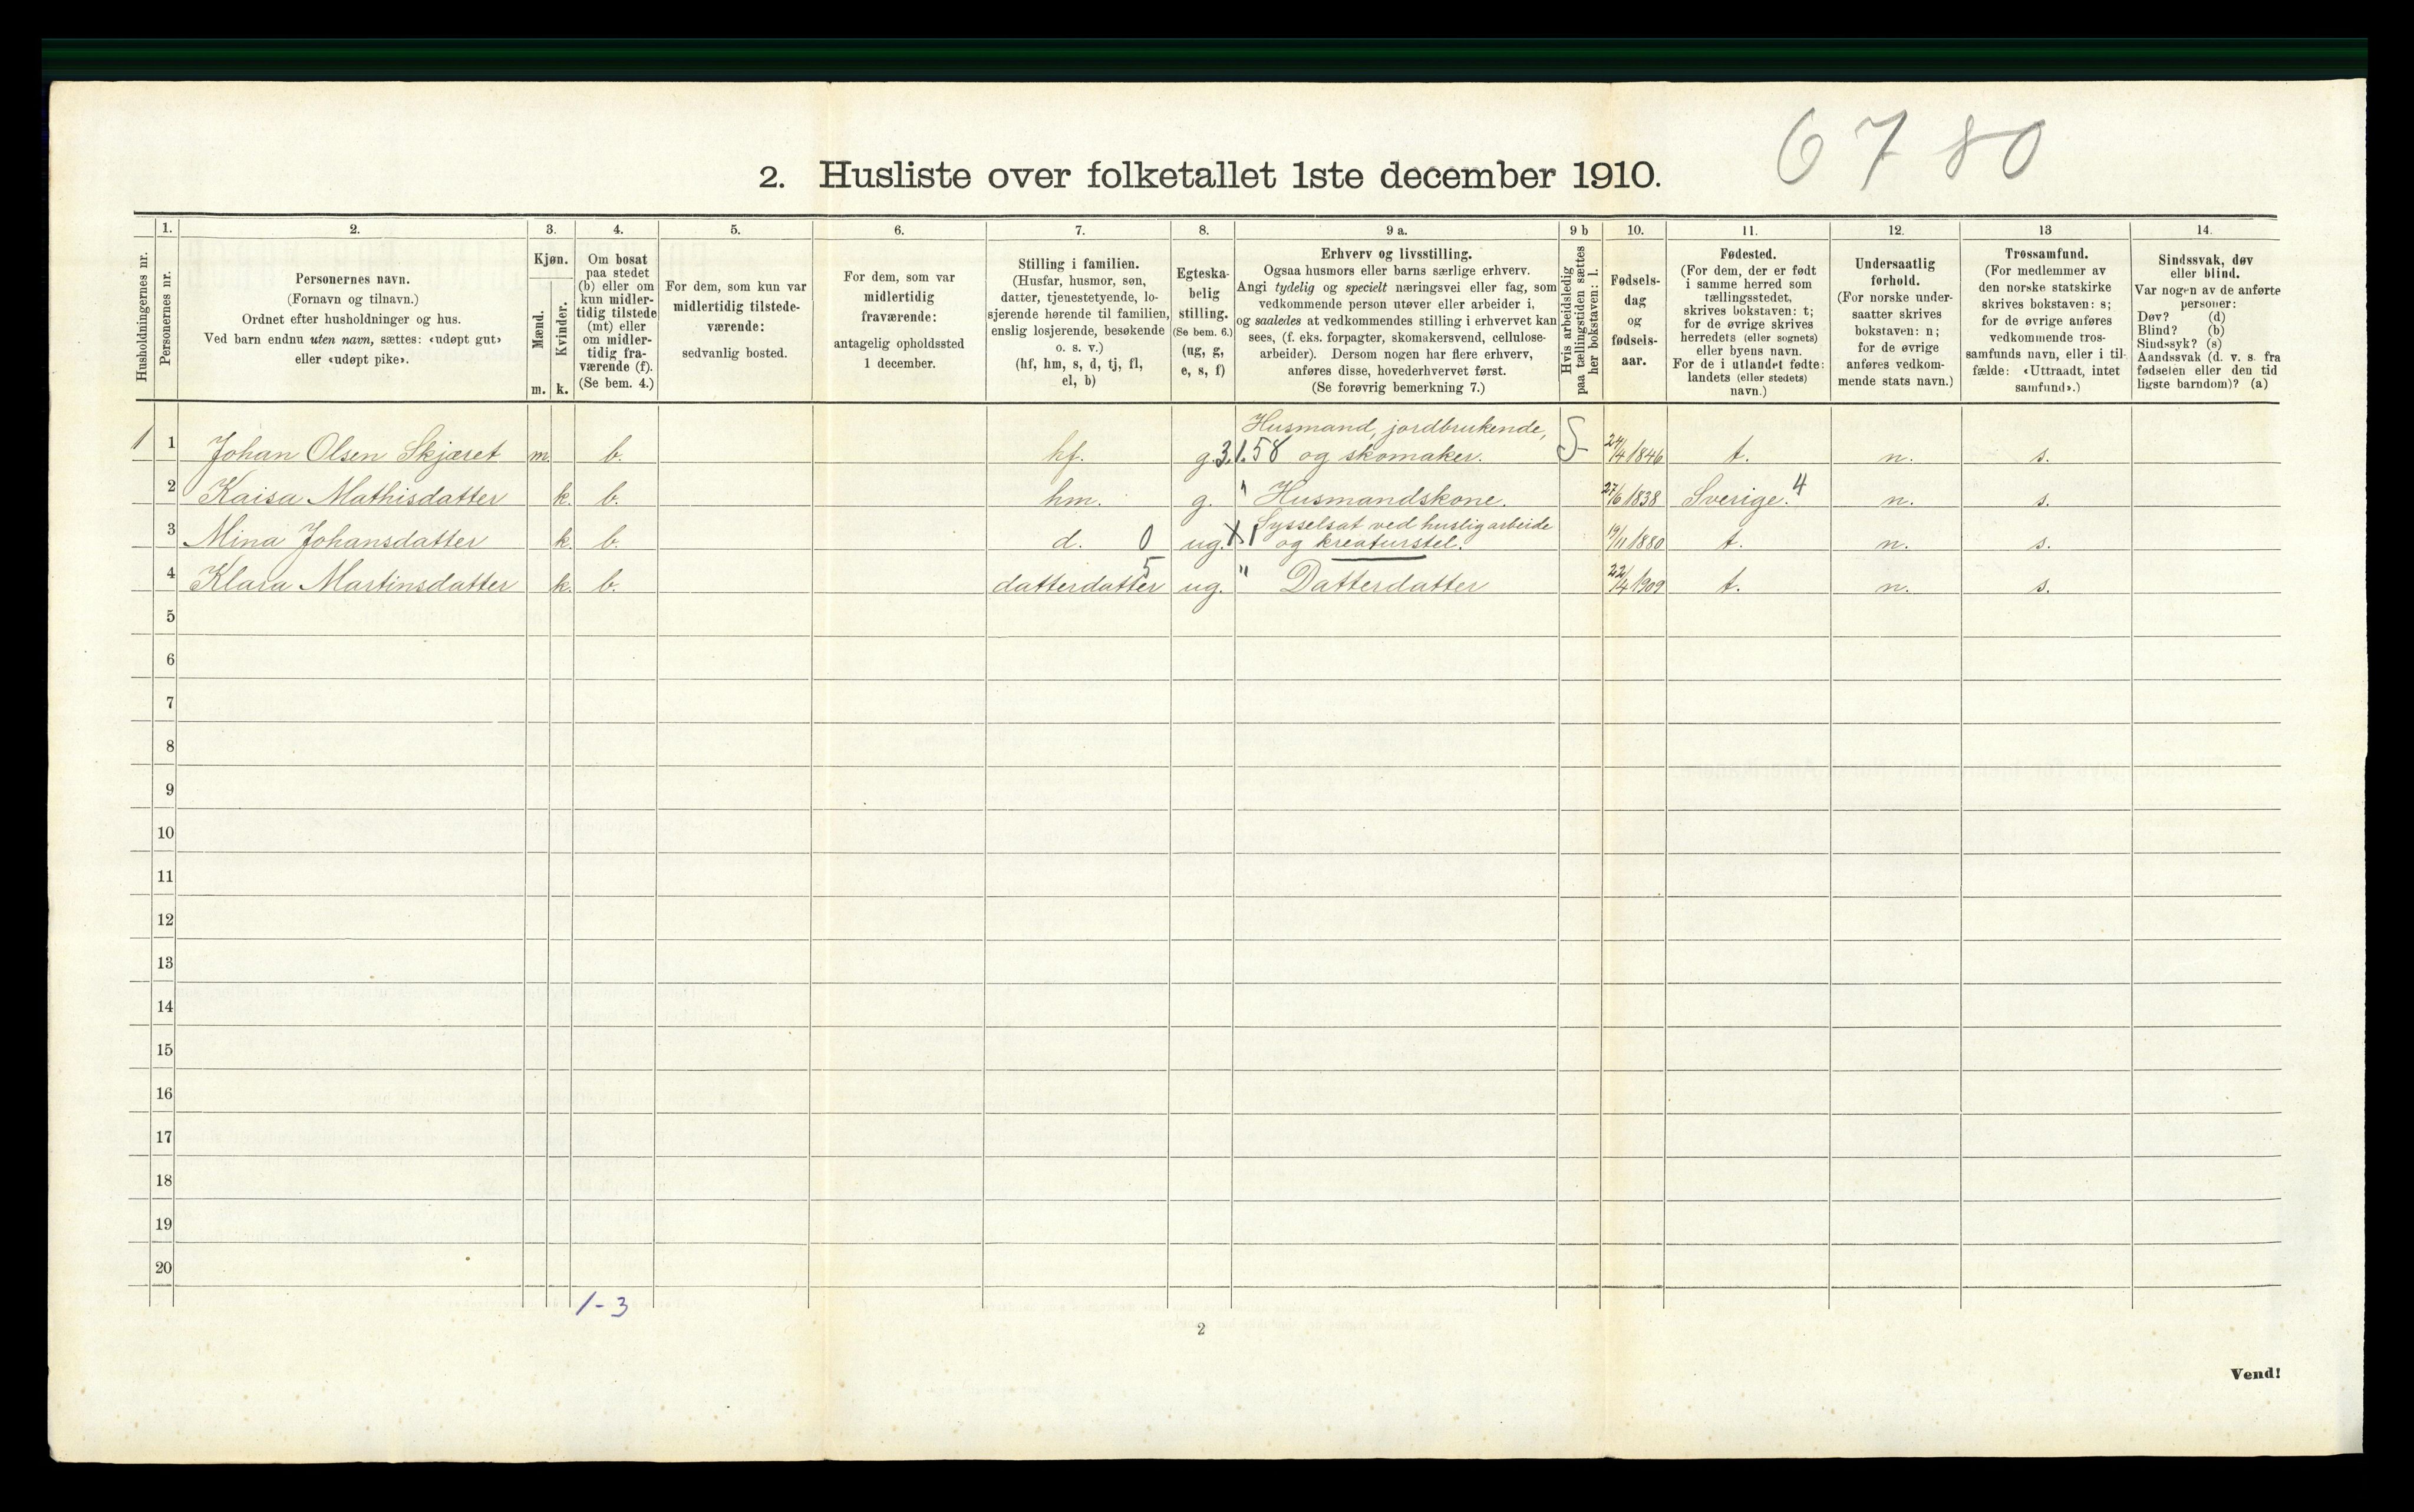 6780
2. Husliste over folketallet 1ste december 1910.
Husholdningernes nr.
1.
Personernes nr.
2.
Personernes navn.
(Fornavn og tilnavn.)
Ordnet efter husholdninger og hus.
Ved barn endnu uten navn, sættes: «udøpt gut»
eller «udøpt pike».
3.
Kjøn.
Mænd.
m.
Kvinder.
k.
4.
Om bosat
paa stedet
(b) eller om
kun midler-
tidig tilstede
(mt) eller
om midler-
tidig fra-
værende (f).
(Se bem. 4.)
5.
For dem, som kun var
midlertidig tilstede-
værende:
sedvanlig bosted.
6.
For dem, som var
midlertidig
fraværende:
antagelig opholdssted
1 december.
7.
Stilling i familien.
(Husfar, husmor, søn,
datter, tjenestetyende, lo-
sjerende hørende til familien,
enslig losjerende, besøkende
o. s. v.)
(hf, hm, s, d, tj, fl,
el, b)
8.
Egteska-
belig
stilling.
(Se bem. 6.)
(ug, g,
e, s, f)
9 a.
Erhverv og livsstilling.
Ogsaa husmors eller barns særlige erhverv.
Angi tydelig og specielt næringsvei eller fag, som
vedkommende person utøver eller arbeider i,
og saaledes at vedkommendes stilling i erhvervet kan
sees, (f. eks. forpagter, skomakersvend, cellulose-
arbeider). Dersom nogen har flere erhverv,
anføres disse, hovederhvervet først.
(Se forøvrig bemerkning 7.)
9 b
Hvis arbeidsledig
paa tællingstiden sættes
her bokstaven: l.
10.
Fødsels-
dag
og
fødsels-
aar.
11.
Fødested.
(For dem, der er født
i samme herred som
tællingsstedet,
skrives bokstaven: t;
for de øvrige skrives
herredets (eller sognets)
eller byens navn.
For de i utlandet fødte:
landets (eller stedets)
navn.)
12.
Undersaatlig
forhold.
(For norske under-
saatter skrives
bokstaven: n;
for de øvrige
anføres vedkom-
mende stats navn.)
13
Trossamfund.
(For medlemmer av
den norske statskirke
skrives bokstaven: s;
for de øvrige anføres
vedkommende tros-
samfunds navn, eller i til-
fælde: «Uttraadt, intet
samfund».)
14.
Sindssvak, døv
eller blind.
Var nogen av de anførte
personer:
Døv? (d)
Blind? (b)
Sindssyk? (s)
Aandssvak (d. v. s. fra
fødselen eller den tid
ligste barndom)? (a)
Husmand, jordbrukende,
1 1 Johan Olsen Skjæret m. b. hf. g. 3.1.58 og skomaker. S 24/4 1846 t. n. s.
2 Kaisa Mathisdatter k. b. hm. g. " Husmandskone. 27/6 1838 Sverige. 4 n. s.
Sysselsat ved huslig arbeide
3 Mina Johansdatter k. b. d. 0 ug. X 1 og kreaturstel. 19/11 1880 t. n. s.
4 Klara Martinsdatter k. b. datterdatter 5 ug. " Datterdatter 22/4 1909 t. n. s.
5
6
7
8
9
10
11
12
13
14
15
16
17
18
19
20
1-3
2
Vend!